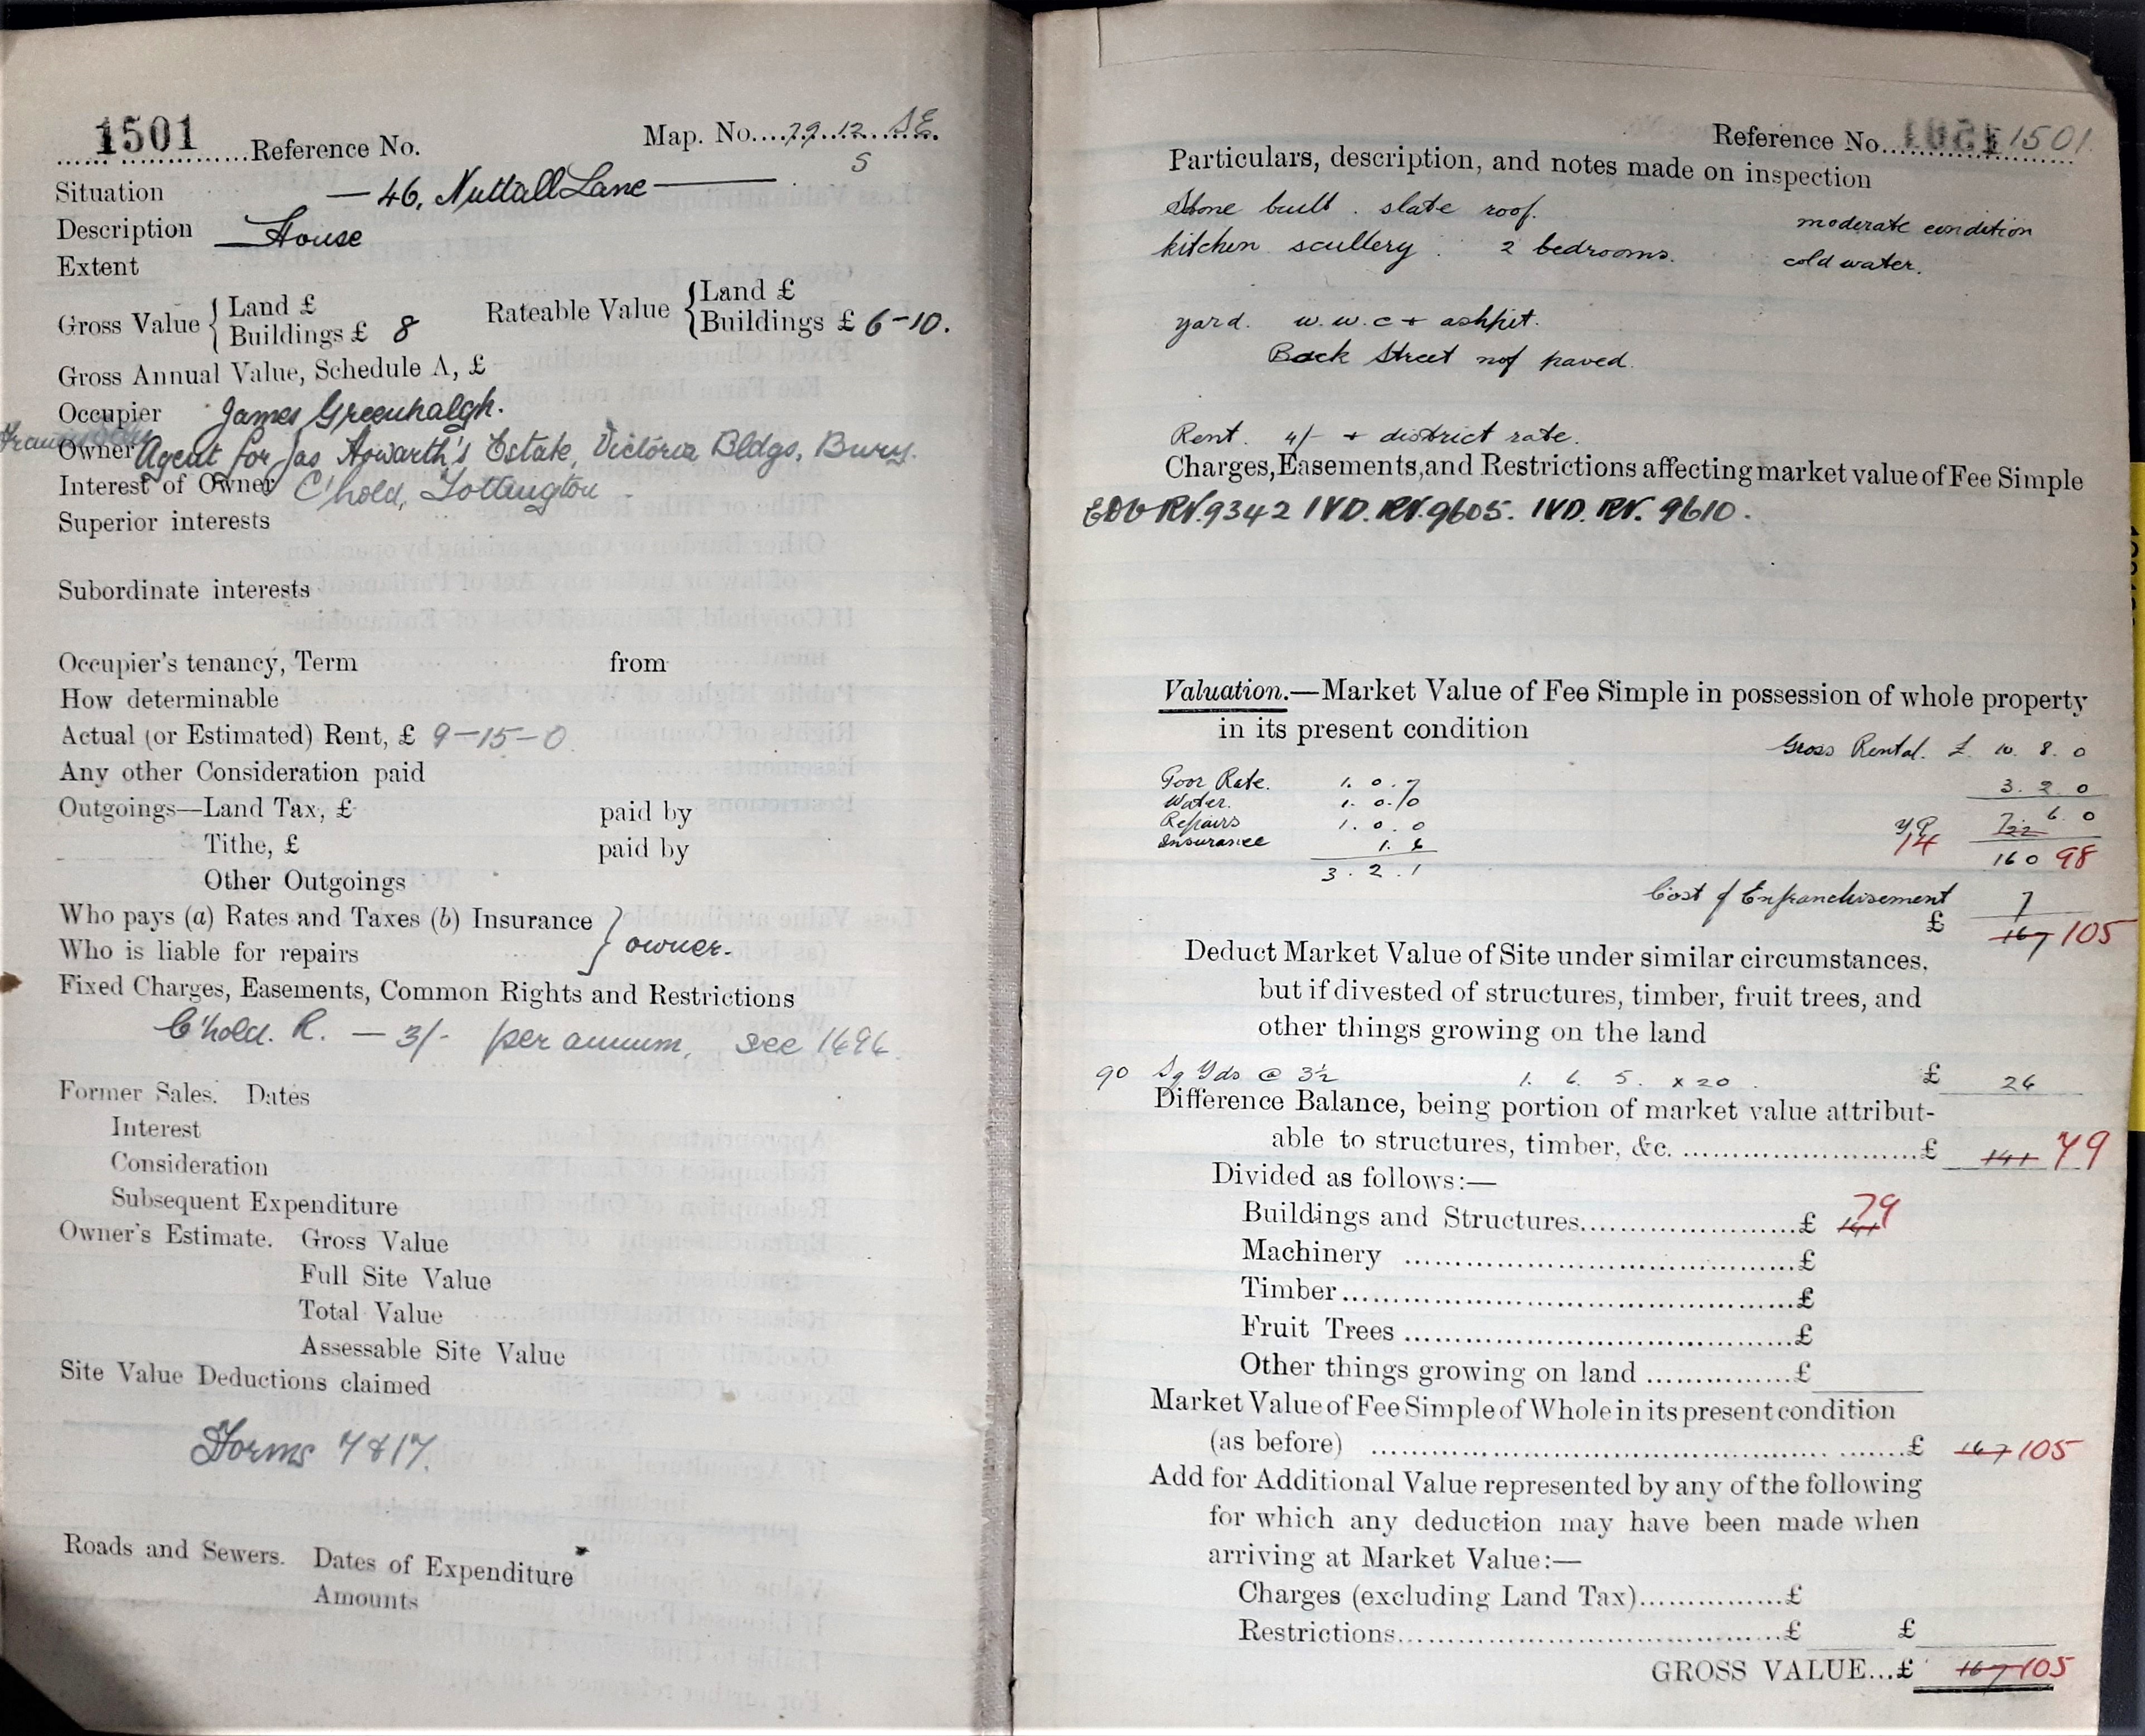 1501 Reference No. Map. No. 79.12 SE
S
Situation — 46, Nuttall Lane —
Description — House
Extent
Gross Value { Land £
Buildings £ 8
Rateable Value { Land £
Buildings £ 6-10.
Gross Annual Value, Schedule A, £
Occupier James Greenhalgh.
Owner Agent for Jas Howarth's Estate, Victoria Bldgs, Bury.
Interest of Owner C'hold, Tottington
Superior interests
Subordinate interests
Occupier's tenancy, Term from
How determinable
Actual (or Estimated) Rent, £ 9-15-0
Any other Consideration paid
Outgoings—Land Tax, £ paid by
Tithe, £ paid by
Other Outgoings
Who pays (a) Rates and Taxes (b) Insurance
Who is liable for repairs } owner.
Fixed Charges, Easements, Common Rights and Restrictions
C'hold. R. — 3/- per annum, see 1496
Former Sales. Dates
Interest
Consideration
Subsequent Expenditure
Owner's Estimate. Gross Value
Full Site Value
Total Value
Assessable Site Value
Site Value Deductions claimed
Forms 7 & 17.
Roads and Sewers. Dates of Expenditure
Amounts
Reference No. 1501
Particulars, description, and notes made on inspection
Stone built. slate roof. moderate condition
kitchen scullery. 2 bedrooms. cold water.
yard. w.w.c + ashpit.
Back Street not paved.
Rent. 4/- + district rate.
Charges, Easements, and Restrictions affecting market value of Fee Simple
RV.9342 IVD. RV.9605. IVD. RV. 9610.
Valuation.—Market Value of Fee Simple in possession of whole property
in its present condition
Gross Rental. £ 10. 8. 0
Poor Rate. 1. 0. 7 3. 2. 0
Water. 1. 0. 0
Repairs 1. 0. 0 YP 7. 6. 0
Insurance 1. 6 14 22
3. 2. 1 160 98
Cost of Enfranchisement 7
£ 167 105
Deduct Market Value of Site under similar circumstances,
but if divested of structures, timber, fruit trees, and
other things growing on the land
90 Sq Yds @ 3½ 1. 6. 5. x 20. £ 26
Difference Balance, being portion of market value attribut-
able to structures, timber, &c. £ 141 79
Divided as follows:—
Buildings and Structures £ 141 79
Machinery £
Timber £
Fruit Trees £
Other things growing on land £
Market Value of Fee Simple of Whole in its present condition
(as before) £ 167 105
Add for Additional Value represented by any of the following
for which any deduction may have been made when
arriving at Market Value:—
Charges (excluding Land Tax) £
Restrictions £ £
GROSS VALUE...£ 167 105